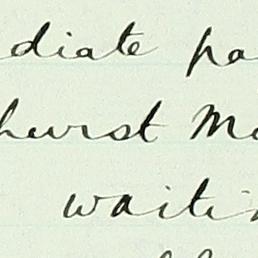 diate pa
hurst Mo
waitin